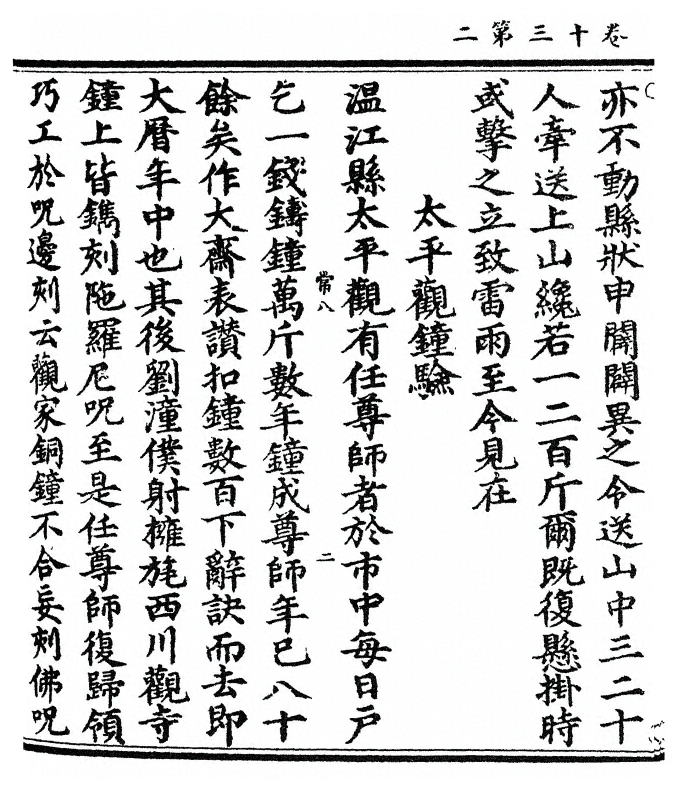 卷十三第二
亦不動縣狀申聞闢異之令送山中三二十
人牽送上山纔若一二百斤爾旣復懸掛時
或擊之立致雷雨至今見在
太平觀鐘驗
温江縣太平觀有任尊師者於市中每日戶
常八
二
乞一錢鑄鐘萬斤數年鐘成尊師年已八十
餘矣作大齋表讚扣鐘數百下辭訣而去即
大曆年中也其後劉潼僕射擁旄西川觀寺
鐘上皆鐫刻陁羅尼呪至是任尊師復歸領
巧工於呪邊刻云觀家銅鐘不合妄刻佛呪